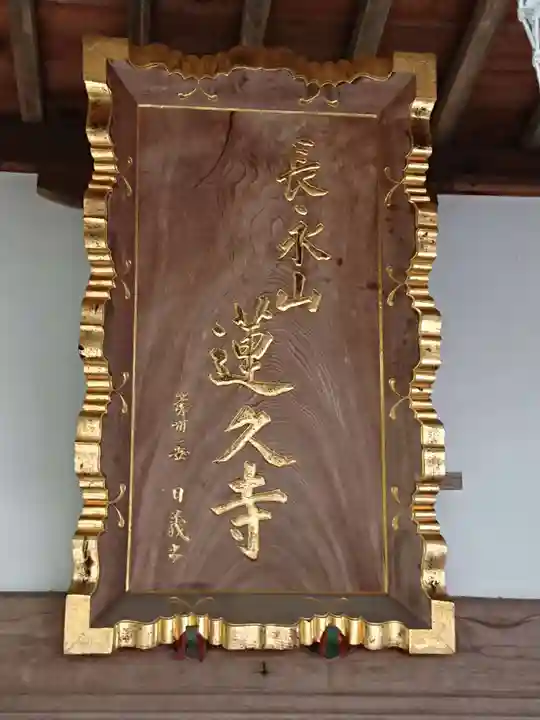 長永山
蓮久寺
日義書